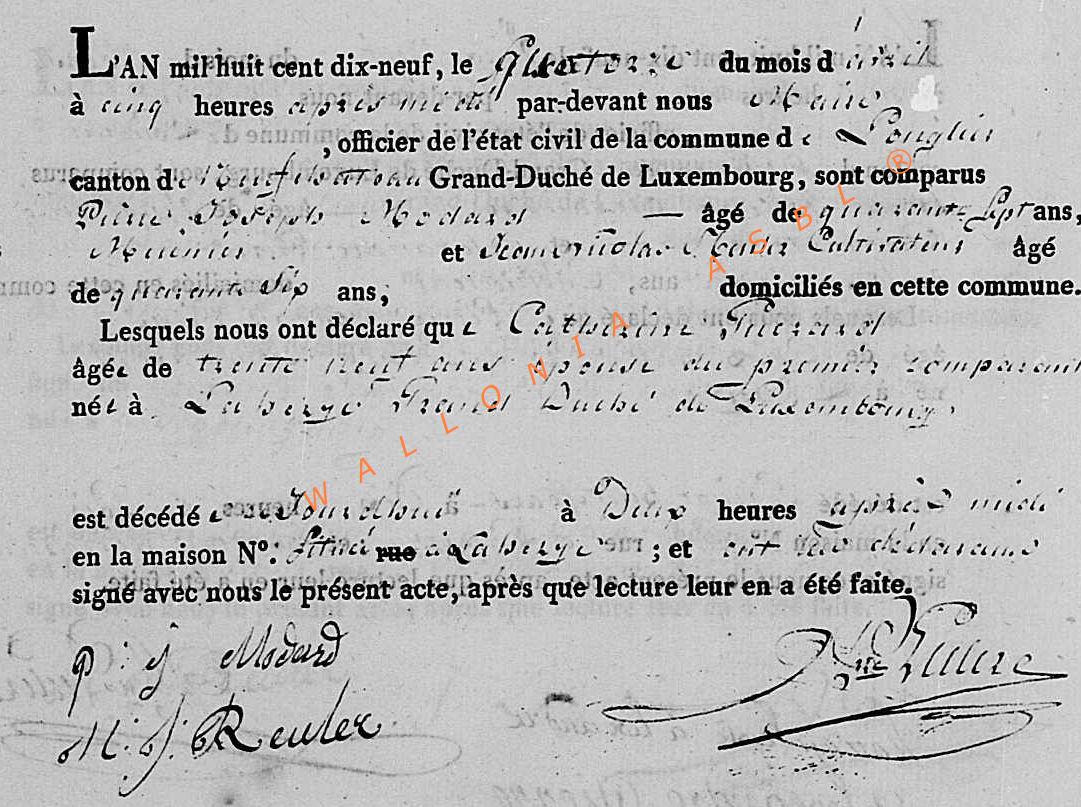 L'AN mil huit cent dix-neuf, le quatorze du mois d'avril
à cinq heures après midi par-devant nous Maire
, officier de l'état civil de la commune de Longlier
canton de Neufchateau Grand-Duché de Luxembourg, sont comparus
Pierre Joseph Modard — âgé de quarante Sept ans,
Meunier et Jean Nicolas Cultivateur âgé
de quarante Six ans, domiciliés en cette commune.
Lesquels nous ont déclaré que Catherine
âgée de trente neuf ans épouse du premier comparant
née à Laherge Grand Duché de Luxembourg
est décédée à deux heures après midi
en la maison N°. Située rue à Laherge ; et ont les déclarans
signé avec nous le présent acte, après que lecture leur en a été faite.
P. J. Modard
N. J. Reuler
WALLONIA ASBL ®